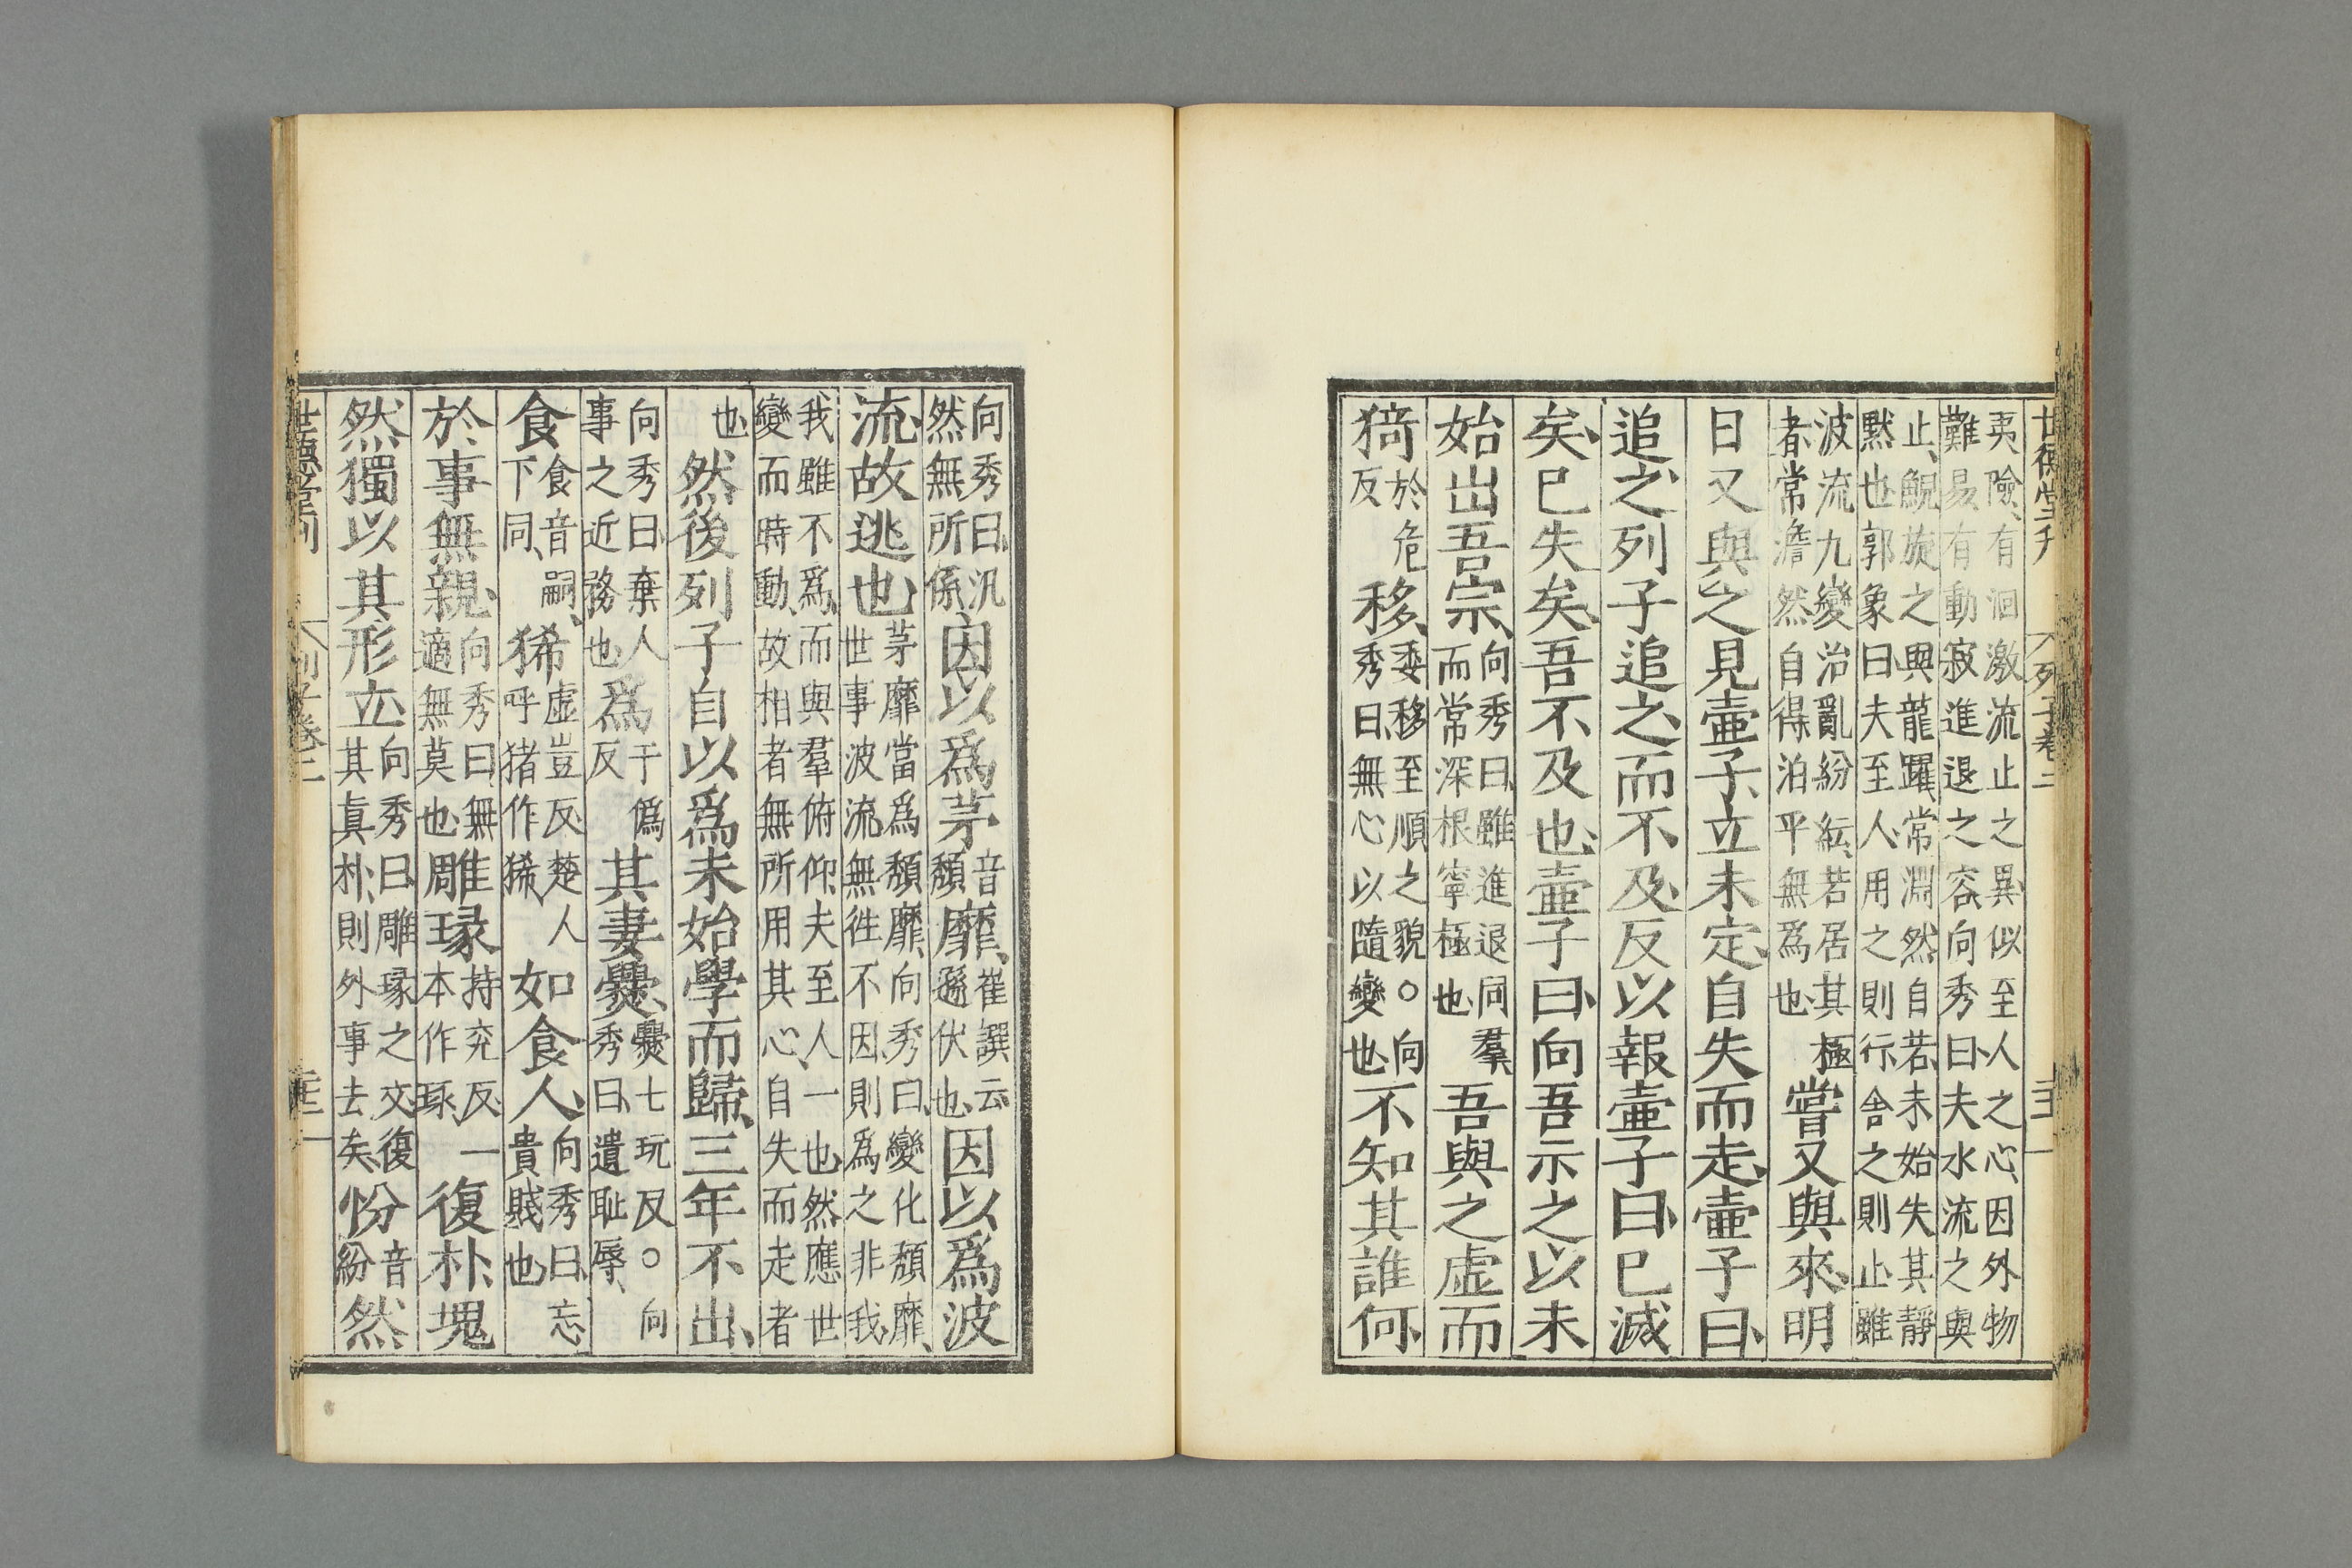 世德堂刊 列子卷二
夷險有洄激流止之異似至人之心因外物
難易有動寂進退之容向秀曰夫水流之與
止鯢旋之與龍躍常淵然自若未始失其靜
默也郭象曰夫至人用之則行舍之則止雖
波流九變治亂紛紜若居其極
者常澹然自得泊乎無爲也嘗又與來明
日又與之見壺子立未定自失而走壺子曰
追之列子追之而不及反以報壺子曰已滅
矣已失矣吾不及也壺子曰向吾示之以未
始出吾宗向秀曰雖進退同羣而常深根寧極也吾與之虛而
猗於危反移委移至順之貌○向秀曰無心以隨變也不知其誰何
向秀曰汎然無所係因以爲茅音頹靡崔譔云遜伏也因以爲波
流故逃也茅靡當爲頹靡向秀曰變化頹靡世事波流無往不因則爲之非我
我雖不爲而與羣俯仰夫至人一也然應世
變而時動故相者無所用其心自失而走者
也然後列子自以爲未始學而歸三年不出
向秀曰棄人事之近務也爲于僞反其妻爨爨七玩反○向秀曰遺恥辱
食食音嗣下同狶虛豈反楚人呼猪作狶如食人向秀曰忘貴賤也
於事無親向秀曰無適無莫也雕瑑持兗反一本作琢復朴塊
然獨以其形立向秀曰雕瑑之文復其真朴則外事去矣忿音紛然
世德堂刊 列子卷二